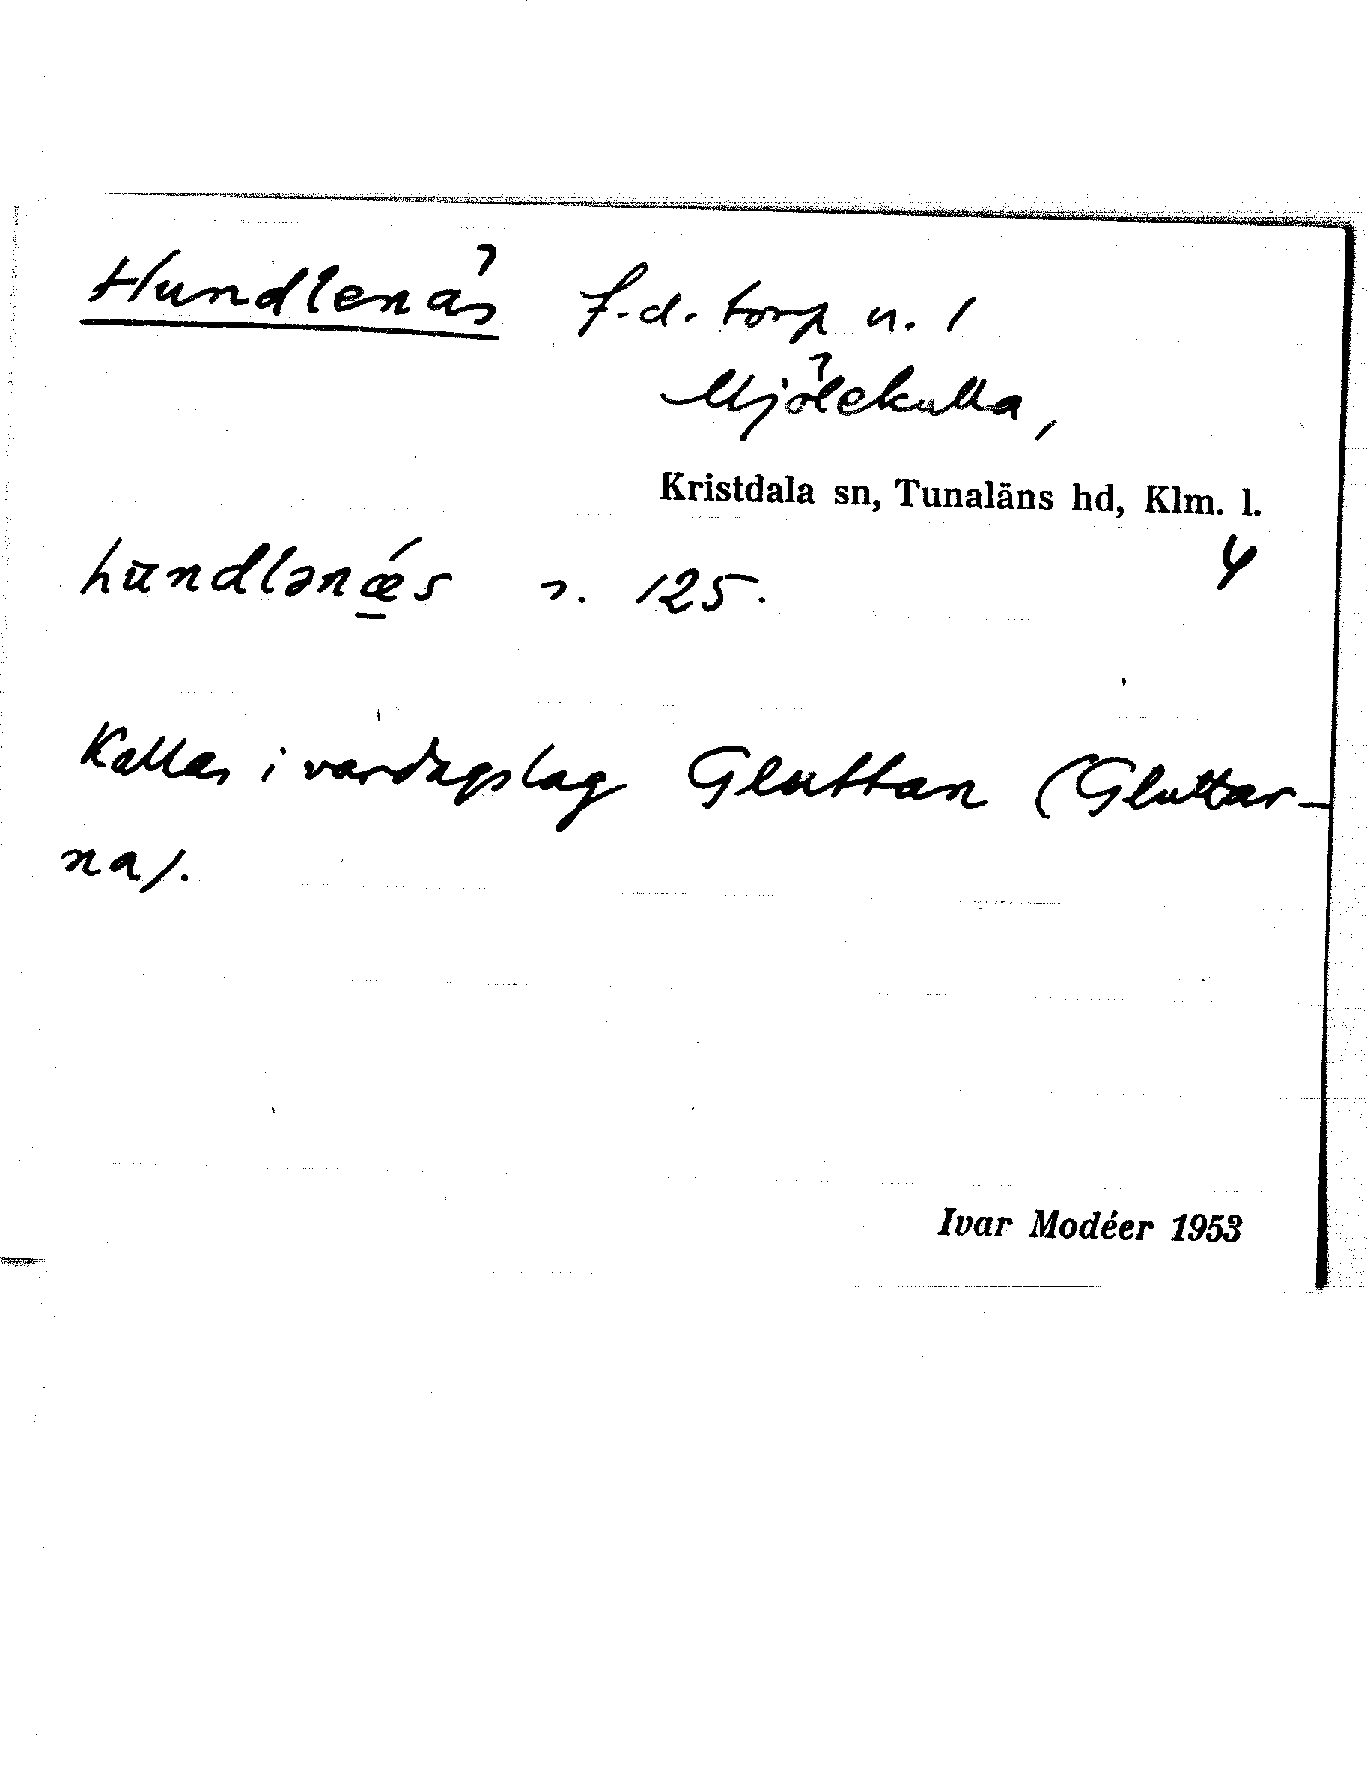 Hundlenäs f.d. torp u. 1
Mjölekulla,
Kristdala sn, Tunaläns hd, Klm. l.
4
hundlənǽs s. 125.
Kallas i vardagslag Gluttan (Gluttar-
na).
Ivar Modéer 1953